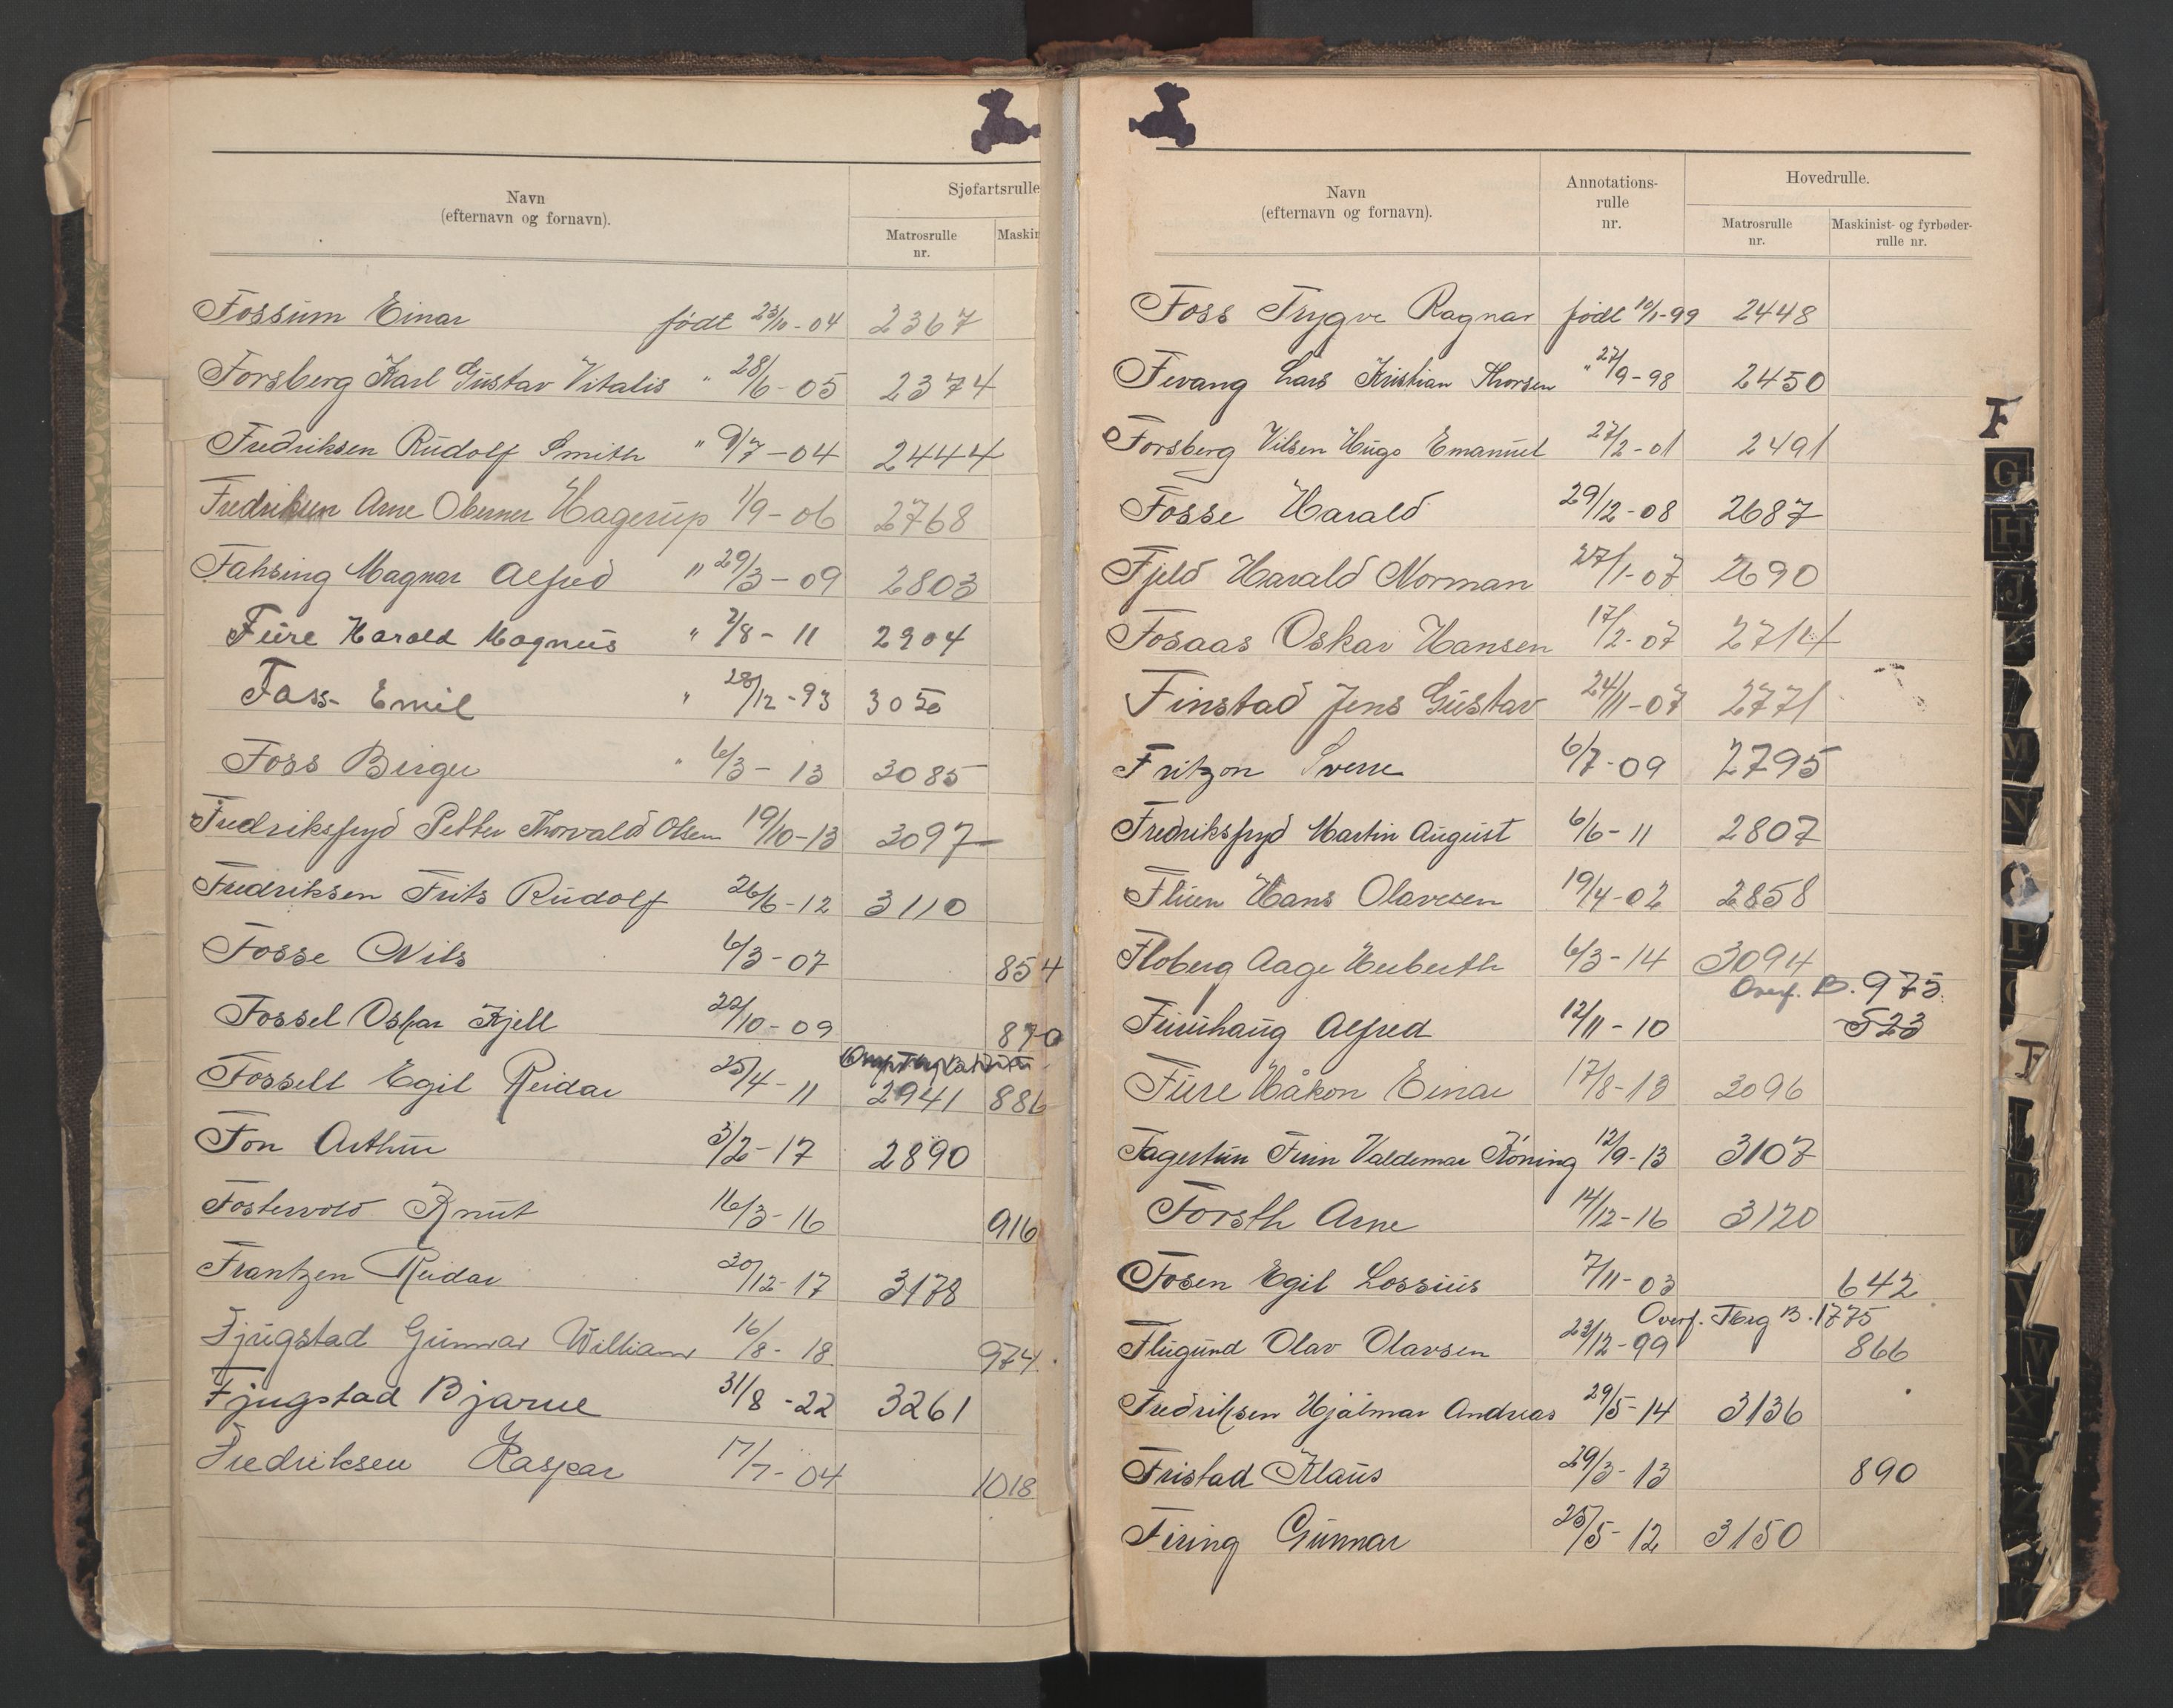 Navn
(efternavn og fornavn).
Sjøfartsrulle
Matrosrulle
nr.
Maskin
Fossum Einar født 23/10-04 2367
Forsberg Karl Gustav Vitalis " 28/6-05 2374
Fredriksen Rudolf Smith " 9/7-04 2444
Fredriksen Arne Hagerup 1/9-06 2768
Fahsing Magnar Alfred " 29/3-09 2803
Fure Harald Magnus " 2/8-11 2904
Foss Emil " 28/12-93 3050
Foss Birger " 6/3-13 3085
Fredriksfryd Petter Thorvald Olsen 19/10-13 3097
Fredriksen Frits Rudolf 26/6-12 3110
Fosse Nils 6/3-07 854
Fossel Oskar Kjell 22/10-09 870
Fossell Egil Reidar 25/4-11 2941 886
Fon Arthur 3/2-17 2890
Fostervold Knut 16/3-16 916
Frantzen Reidar 30/12-17 3178
Fjugstad Gunnar William 16/8-18 974
Fjugstad Bjarne 31/8-22 3261
Fredriksen Kaspar 17/7-04 1018
Navn
(efternavn og fornavn).
Annotations-
rulle
nr.
Hovedrulle.
Matrosrulle
nr.
Maskinist- og fyrbøder-
rulle nr.
Foss Trygve Ragnar født 10/1-99 2448
Fevang Lars Kristian Thorsen " 27/9-98 2450
Forsberg Vilsen Hugo Emanuel 27/2-01 2491
Fosse Harald 29/12-08 2687
Fjeld Harald Norman 27/1-07 2690
Fosaas Oskar Hansen 17/2-07 2714
Finstad Jens Gustav 24/11-07 2771
Fritzon Sverre 6/7-09 2795
Fredriksfryd Martin August 6/6-11 2807
Fluen Hans Olavesen 19/4-02 2858
Floberg Aage Herberth 6/3-14 3094
Overf. B. 975
Furuhaug Alfred 12/11-10 523
Fure Håkon Einar 17/8-13 3096
Fagertun Finn Valdemar Køning 12/9-13 3107
Forsth Arne 14/12-16 3120
Fosen Egil Lossius 7/11-03 642
Overf. Tbrg B. 1775
Flugund Olav Olavsen 23/12-99 866
Fredriksen Hjalmar Andreas 29/5-14 3136
Fristad Klaus 29/3-13 890
Firing Gunnar 25/5-12 3150
F
G
H
J
M
N
P
T
W
X
Y